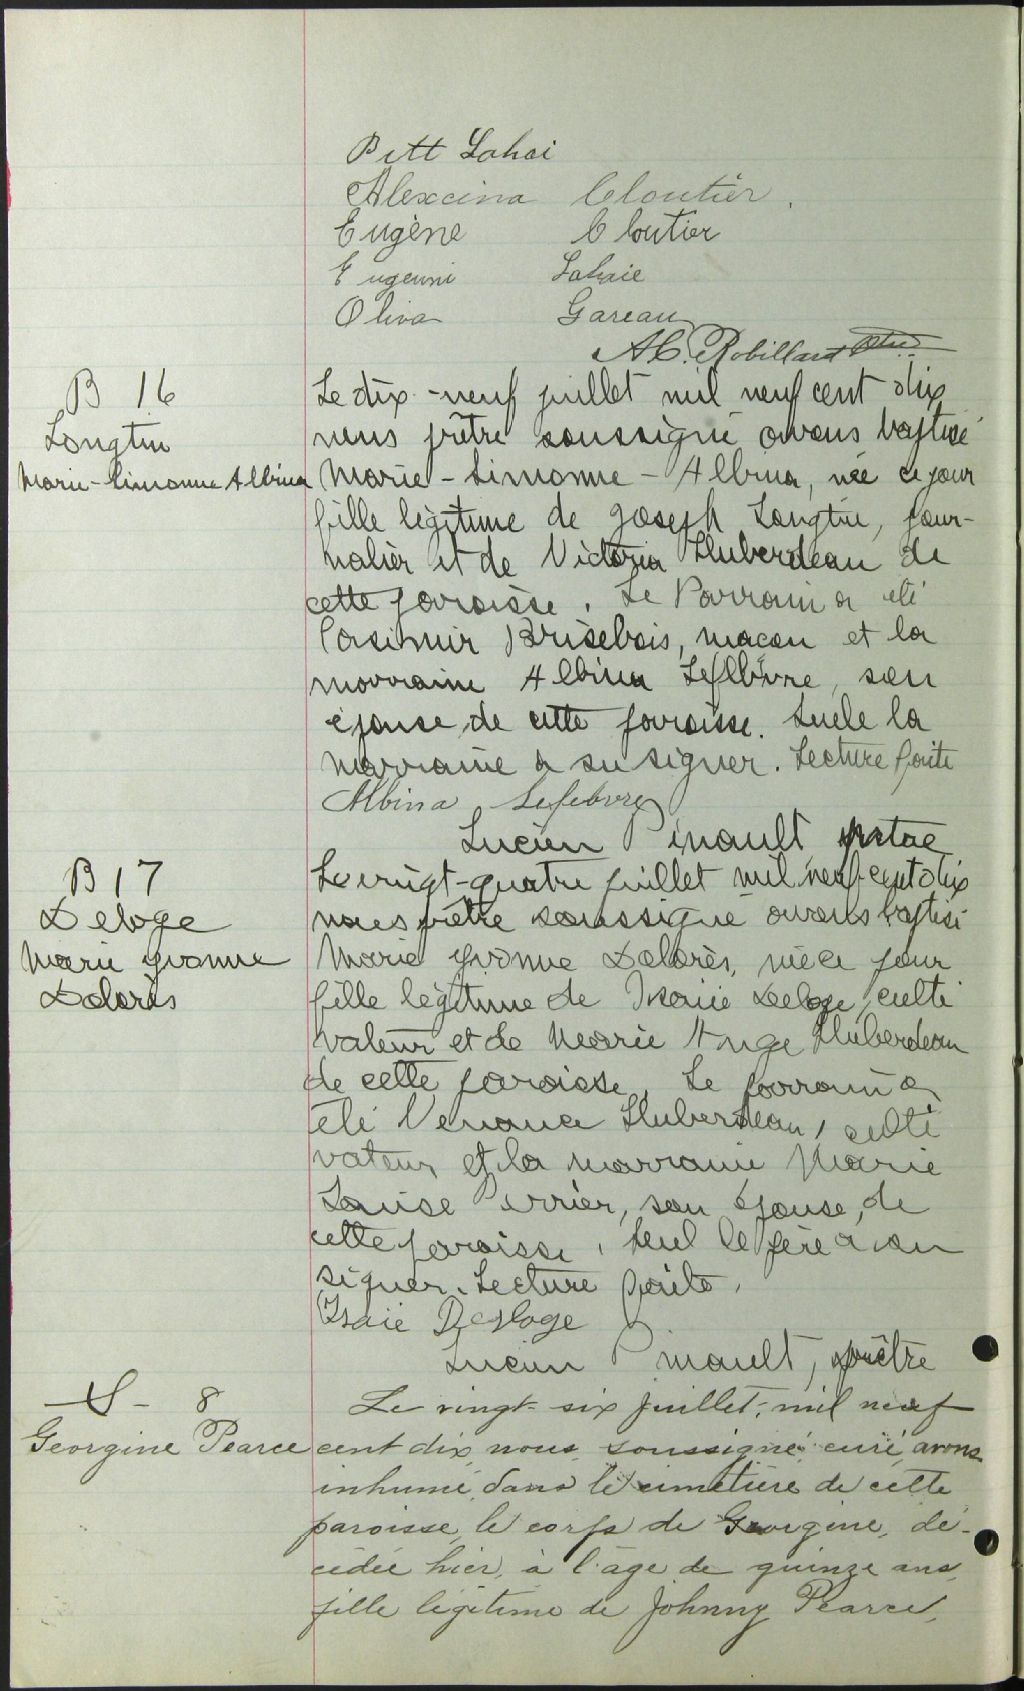 Pitt Lahai
Alexcina Cloutier.
Eugène Cloutier
Eugenni Lahaie
Oliva Gareau
A.C. Robillard Ptre
B 16
Longtin
Marie-Simonne Albina
Le dix-neuf juillet mil neuf cent dix
nous prêtre soussigné avons baptisé
Marie-Simonne-Albina, née ce jour
fille légitime de Joseph Longtin, jour-
nalier et de Victoria Huberdeau de
cette paroisse. Le Parrain a été
Casimir Brisebois, maçon et la
marraine Albina Lefebvre, son
épouse, de cette paroisse. Seule la
marraine a su signer. Lecture faite
Albina Lefebvre
Lucien Pinault prêtre
B 17
Deloge
Marie Yvonne
Dolorès
Le vingt-quatre juillet mil neuf cent dix
nous prêtre soussigné avons baptisé
Marie Yvonne Dolorès, née ce jour
fille légitime de Isaïe Deloge, culti
vateur et de Marie Ange Huberdeau
de cette paroisse. Le parrain a
été Venance Huberdeau, culti
vateur et la marraine Marie
Louise Perrier, son épouse, de
cette paroisse. Seul le père a su
signer. Lecture faite.
Isaie Desloge
Lucien Pinault, prêtre
S- 8
Georgine Pearce
Le vingt-six juillet, mil neuf
cent dix, nous, soussigné, curé, avons
inhumé, dans le cimetière de cette
paroisse, le corps de Georgine, dé-
cédée hier, à l'âge de quinze ans,
fille légitime de Johnny Pearce,